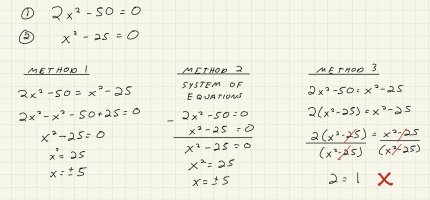 ① 2x² - 50 = 0
② x² - 25 = 0
METHOD 1
2x² - 50 = x² - 25
2x² - x² - 50 + 25 = 0
x² - 25 = 0
x² = 25
x = ± 5
METHOD 2
SYSTEM OF
EQUATIONS
- 2x² - 50 = 0
x² - 25 = 0
x² - 25 = 0
x² = 25
x = ± 5
METHOD 3
2x² - 50 = x² - 25
2(x² - 25) = x² - 25
2(x² - 25) = x² - 25
(x² - 25) (x² - 25)
2 = 1 X